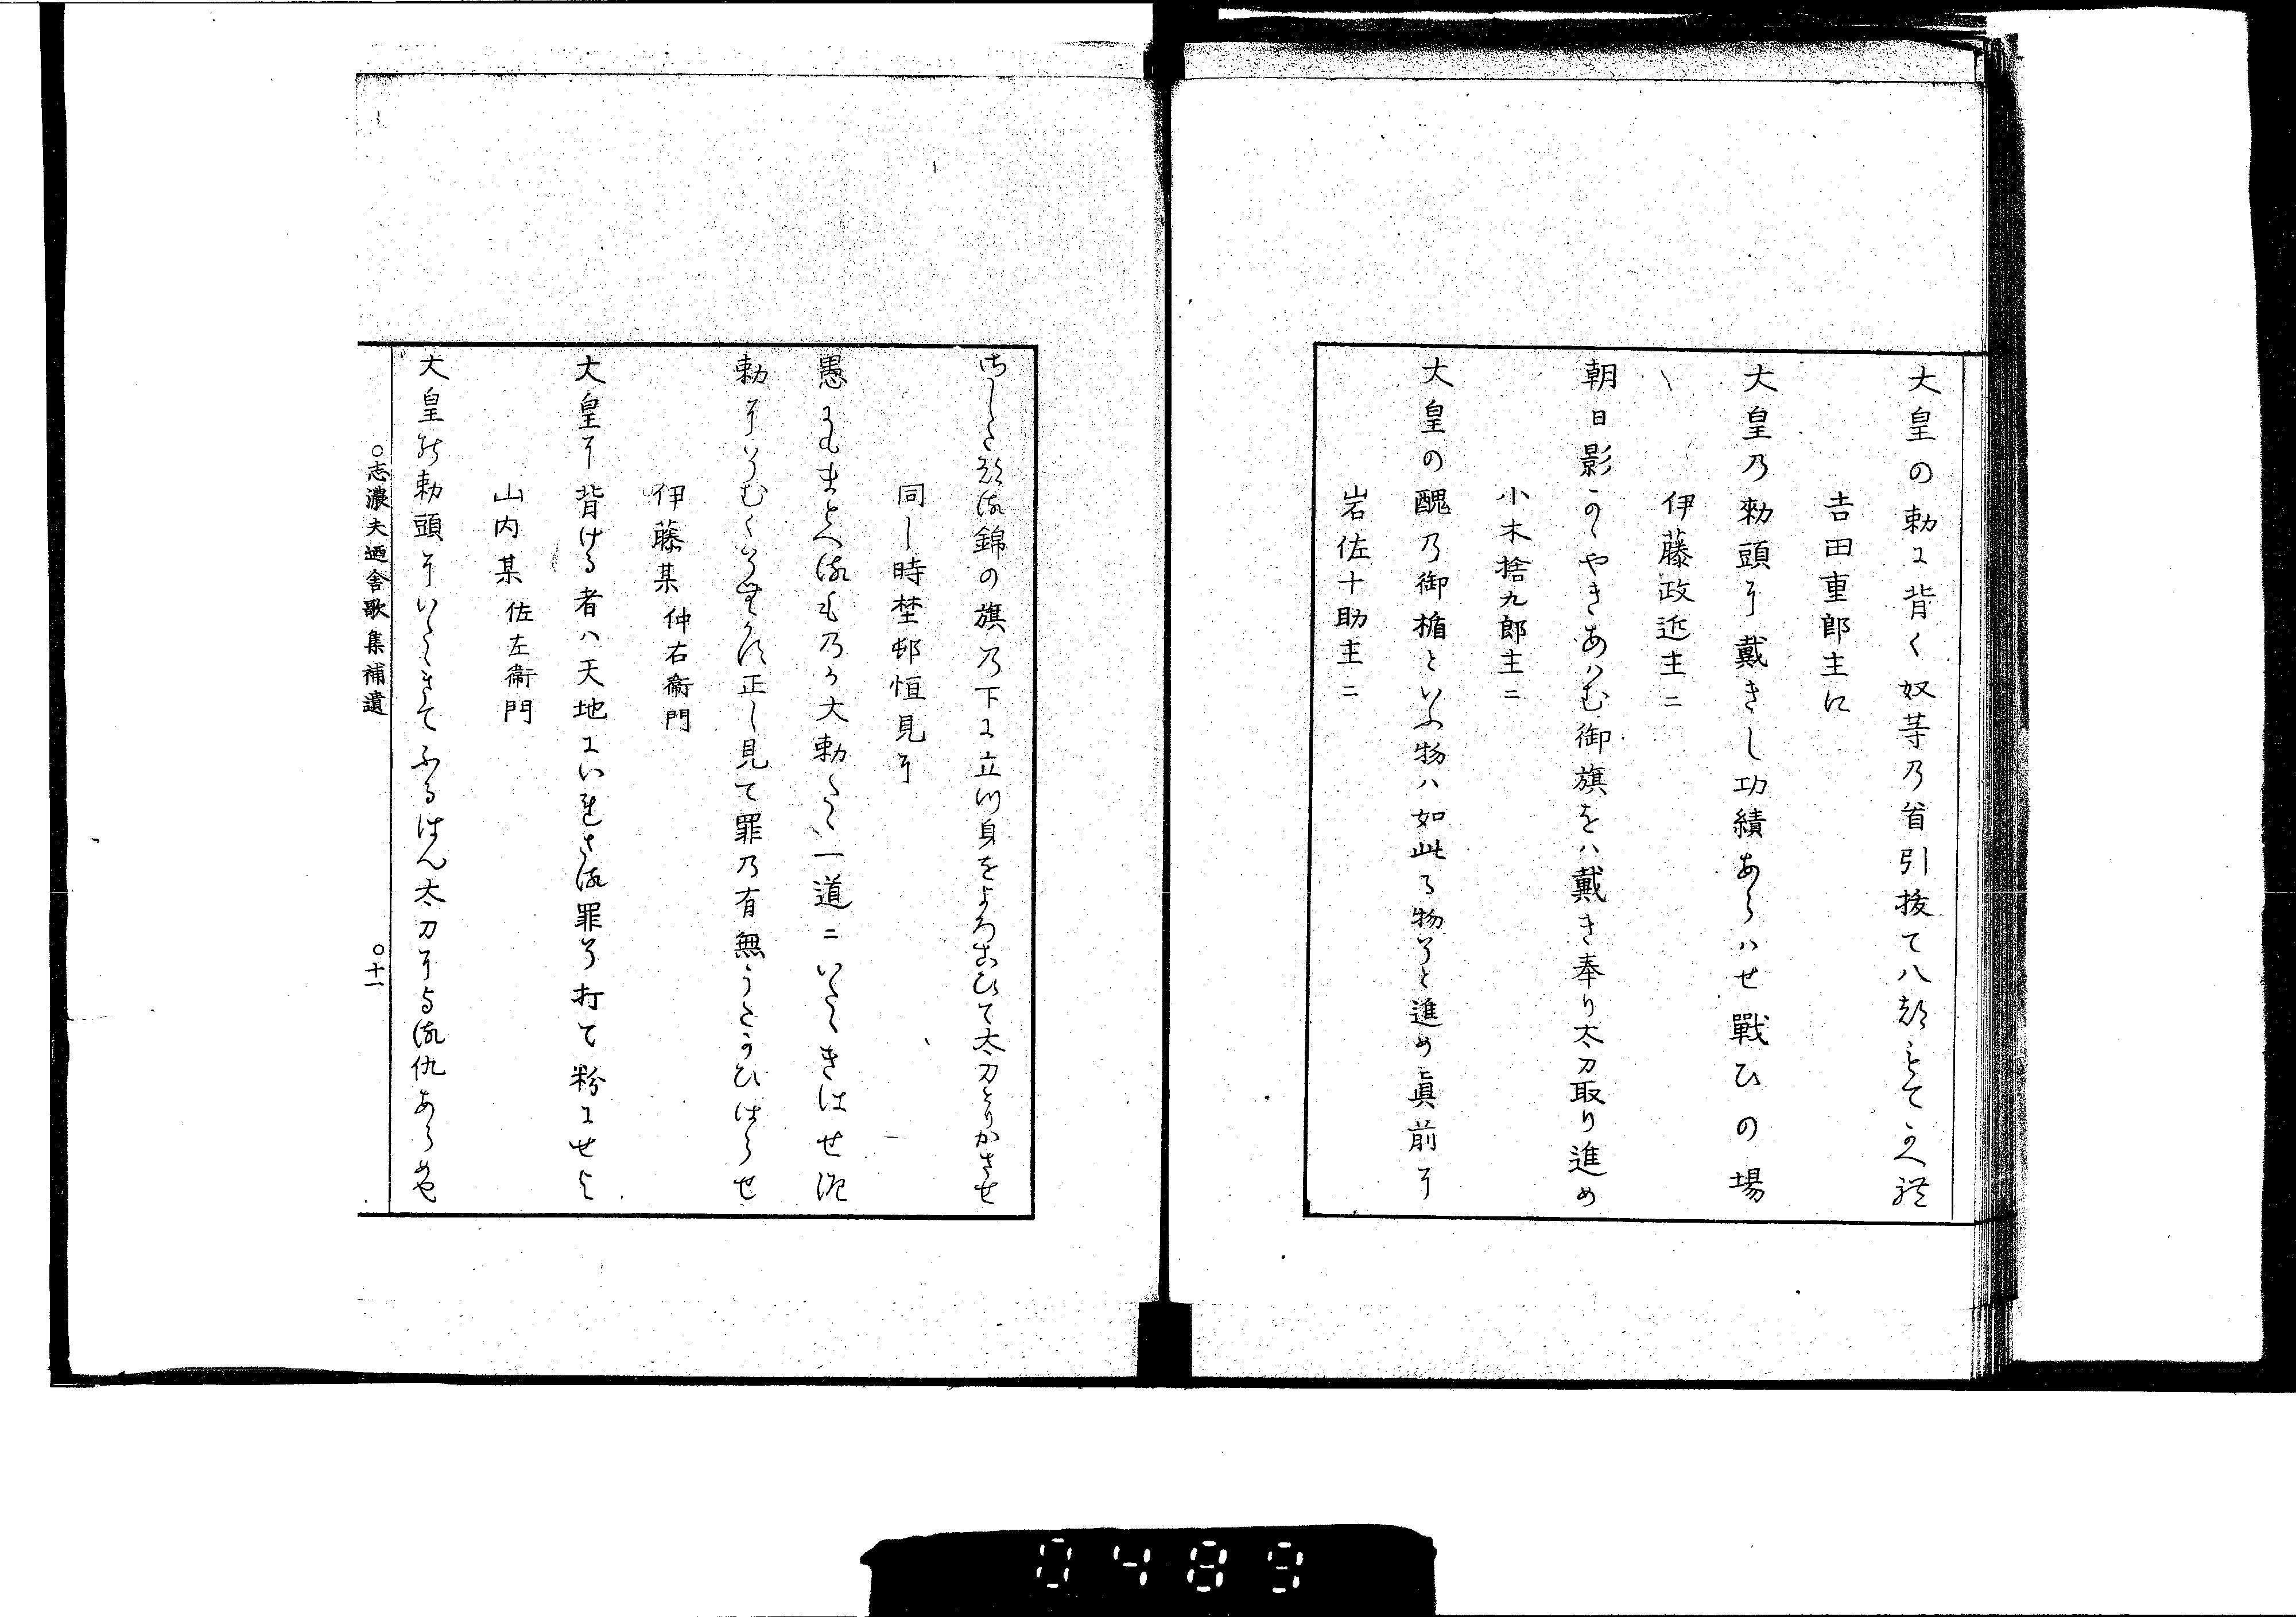 大皇の勅に背く奴等乃首引抜て八都もてかへれ
吉田重郎主に
大皇乃勅頭に戴きし功績あらハせ戦ひの場
伊藤政近主ニ
朝日影かゝやきあハむ御旗をハ戴き奉り太刀取り進め
小木捨九郎主ニ
大皇の醜乃御楯といふ物ハ如此る物そと進め真前に
岩佐十助主ニ
錦の旗乃下に立川身をよろこひて太刀とりかさせ
同し時埜邨恒見に
愚にもまとへるもの乃か大勅たゝ一道ニいたゝきはせて
勅にそむくそむかす正し見て罪乃有無うたかひはらせ
伊藤某仲右衛門
大皇に背ける者ハ天地にいれさる罪そ打て粉にせよ
山内某佐左衛門
大皇の勅頭にいたゝきてふるはん太刀による仇あらめや
○志濃夫廼舎歌集補遺 ○十一
0489